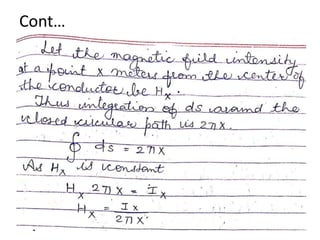 Cont...
Let the magnetic field intensity
at a point x meters from the center of
the conductor be Hx.
Thus integration of ds around the
closed circular path is 2πx.
∮ ds = 2πx
As Hx is constant
Hx 2πx = Ix
Hx = Ix / 2πx